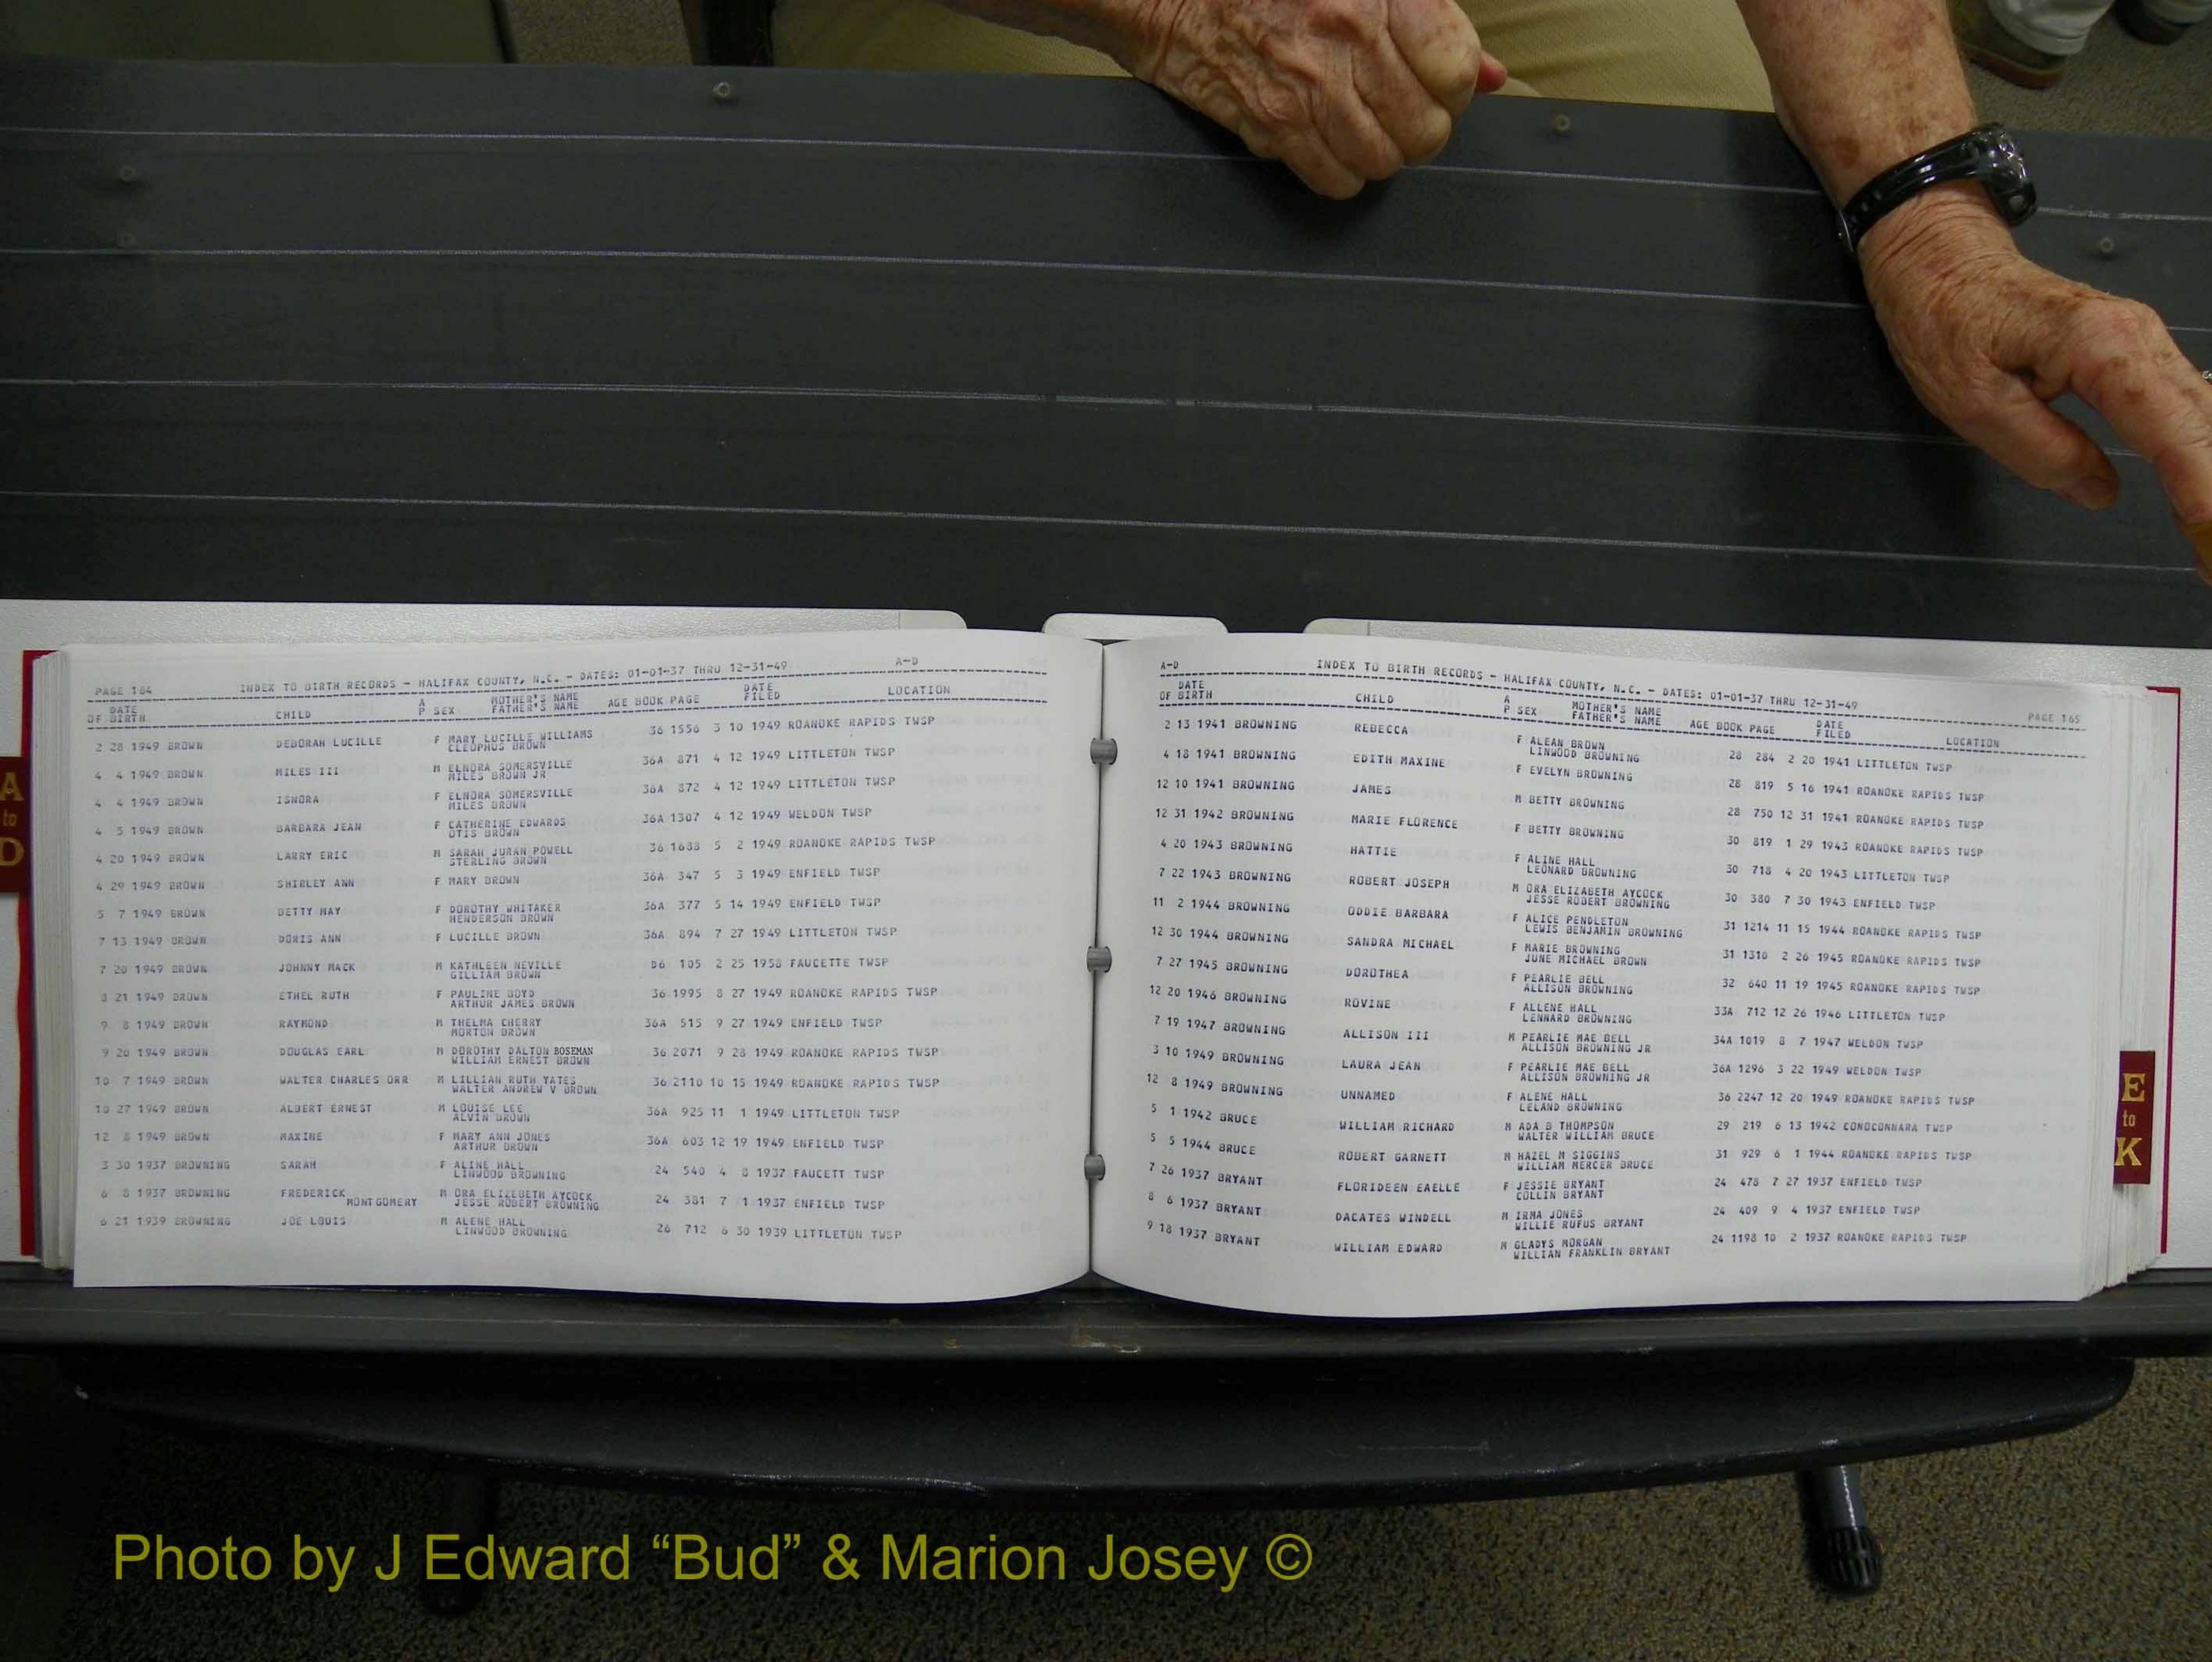 PAGE 164 INDEX TO BIRTH RECORDS - HALIFAX COUNTY, N.C. - DATES: 01-01-37 THRU 12-31-49 A-D
DATE OF BIRTH CHILD A P SEX MOTHER'S NAME FATHER'S NAME AGE BOOK PAGE DATE FILED LOCATION
2 28 1949 BROWN DEBORAH LUCILLE F MARY LUCILLE WILLIAMS 36 1556 3 10 1949 ROANOKE RAPIDS TWSP
CLEOPHUS BROWN
4 4 1949 BROWN MILES III M ELNORA SOMERSVILLE 36A 871 4 12 1949 LITTLETON TWSP
MILES BROWN JR
4 4 1949 BROWN ISNORA F ELNORA SOMERSVILLE 36A 872 4 12 1949 LITTLETON TWSP
MILES BROWN
4 5 1949 BROWN BARBARA JEAN F CATHERINE EDWARDS 36A 1307 4 12 1949 WELDON TWSP
OTIS BROWN
4 20 1949 BROWN LARRY ERIC M SARAH JURAN POWELL 36 1688 5 2 1949 ROANOKE RAPIDS TWSP
STERLING BROWN
4 29 1949 BROWN SHIRLEY ANN F MARY BROWN 36A 347 5 3 1949 ENFIELD TWSP
5 7 1949 BROWN BETTY MAY F DOROTHY WHITAKER 36A 377 5 14 1949 ENFIELD TWSP
HENDERSON BROWN
7 13 1949 BROWN DORIS ANN F LUCILLE BROWN 36A 894 7 27 1949 LITTLETON TWSP
7 20 1949 BROWN JOHNNY MACK M KATHLEEN NEVILLE D6 105 2 25 1958 FAUCETTE TWSP
GILLIAM BROWN
8 21 1949 BROWN ETHEL RUTH F PAULINE BOYD 36 1995 8 27 1949 ROANOKE RAPIDS TWSP
ARTHUR JAMES BROWN
9 8 1949 BROWN RAYMOND M THELMA CHERRY 36A 515 9 27 1949 ENFIELD TWSP
MORTON BROWN
9 20 1949 BROWN DOUGLAS EARL M DOROTHY DALTON BOSEMAN 36 2071 9 28 1949 ROANOKE RAPIDS TWSP
WILLIAM ERNEST BROWN
10 7 1949 BROWN WALTER CHARLES ORR M LILLIAN RUTH YATES 36 2110 10 15 1949 ROANOKE RAPIDS TWSP
WALTER ANDREW V BROWN
10 27 1949 BROWN ALBERT ERNEST M LOUISE LEE 36A 925 11 1 1949 LITTLETON TWSP
ALVIN BROWN
12 8 1949 BROWN MAXINE F MARY ANN JONES 36A 603 12 19 1949 ENFIELD TWSP
ARTHUR BROWN
3 30 1937 BROWNING SARAH F ALINE HALL 24 540 4 8 1937 FAUCETT TWSP
LINWOOD BROWNING
6 8 1937 BROWNING FREDERICK M ORA ELIZEBETH AYCOCK 24 381 7 1 1937 ENFIELD TWSP
MONTGOMERY JESSE ROBERT BROWNING
6 21 1939 BROWNING JOE LOUIS M ALENE HALL 26 712 6 30 1939 LITTLETON TWSP
LINWOOD BROWNING
A-D INDEX TO BIRTH RECORDS - HALIFAX COUNTY, N.C. - DATES: 01-01-37 THRU 12-31-49 PAGE 165
DATE OF BIRTH CHILD A P SEX MOTHER'S NAME FATHER'S NAME AGE BOOK PAGE DATE FILED LOCATION
2 13 1941 BROWNING REBECCA F ALEAN BROWN 28 284 2 20 1941 LITTLETON TWSP
LINWOOD BROWNING
4 18 1941 BROWNING EDITH MAXINE F EVELYN BROWNING 28 819 5 16 1941 ROANOKE RAPIDS TWSP
12 10 1941 BROWNING JAMES M BETTY BROWNING 28 750 12 31 1941 ROANOKE RAPIDS TWSP
12 31 1942 BROWNING MARIE FLORENCE F BETTY BROWNING 30 819 1 29 1943 ROANOKE RAPIDS TWSP
4 20 1943 BROWNING HATTIE F ALINE HALL 30 718 4 20 1943 LITTLETON TWSP
LEONARD BROWNING
7 22 1943 BROWNING ROBERT JOSEPH M ORA ELIZABETH AYCOCK 30 380 7 30 1943 ENFIELD TWSP
JESSE ROBERT BROWNING
11 2 1944 BROWNING ODDIE BARBARA F ALICE PENDLETON 31 1214 11 15 1944 ROANOKE RAPIDS TWSP
LEWIS BENJAMIN BROWNING
12 30 1944 BROWNING SANDRA MICHAEL F MARIE BROWNING 31 1310 2 26 1945 ROANOKE RAPIDS TWSP
JUNE MICHAEL BROWN
7 27 1945 BROWNING DOROTHEA F PEARLIE BELL 32 640 11 19 1945 ROANOKE RAPIDS TWSP
ALLISON BROWNING
12 20 1946 BROWNING ROVINE F ALLENE HALL 33A 712 12 26 1946 LITTLETON TWSP
LENNARD BROWNING
7 19 1947 BROWNING ALLISON III M PEARLIE MAE BELL 34A 1019 8 7 1947 WELDON TWSP
ALLISON BROWNING JR
3 10 1949 BROWNING LAURA JEAN F PEARLIE MAE BELL 36A 1296 3 22 1949 WELDON TWSP
ALLISON BROWNING JR
12 8 1949 BROWNING UNNAMED F ALENE HALL 36 2247 12 20 1949 ROANOKE RAPIDS TWSP
LELAND BROWNING
5 1 1942 BRUCE WILLIAM RICHARD M ADA B THOMPSON 29 219 6 13 1942 CONOCONNARA TWSP
WALTER WILLIAM BRUCE
5 5 1944 BRUCE ROBERT GARNETT M HAZEL M SIGGINS 31 929 6 1 1944 ROANOKE RAPIDS TWSP
WILLIAM MERCER BRUCE
7 26 1937 BRYANT FLORIDEEN EAELLE F JESSIE BRYANT 24 478 7 27 1937 ENFIELD TWSP
COLLIN BRYANT
8 6 1937 BRYANT DACATES WINDELL M IRMA JONES 24 409 9 4 1937 ENFIELD TWSP
WILLIE RUFUS BRYANT
9 18 1937 BRYANT WILLIAM EDWARD M GLADYS MORGAN 24 1198 10 2 1937 ROANOKE RAPIDS TWSP
WILLIAN FRANKLIN BRYANT
A
to
D
E
to
K
Photo by J Edward “Bud” & Marion Josey ©